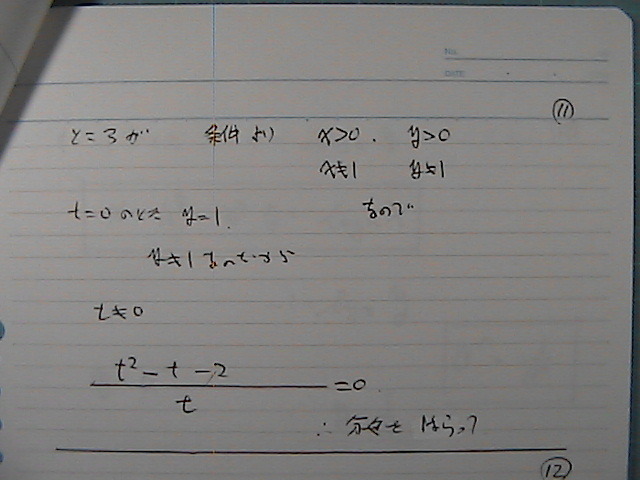 No.
DATE
⑪
ところが 条件より x>0. y>0
x≠1 y≠1
t=0のとき y=1. なので
y≠1なのだから
t≠0
t²-t-2/t =0.
∴ 分母をはらって
⑫